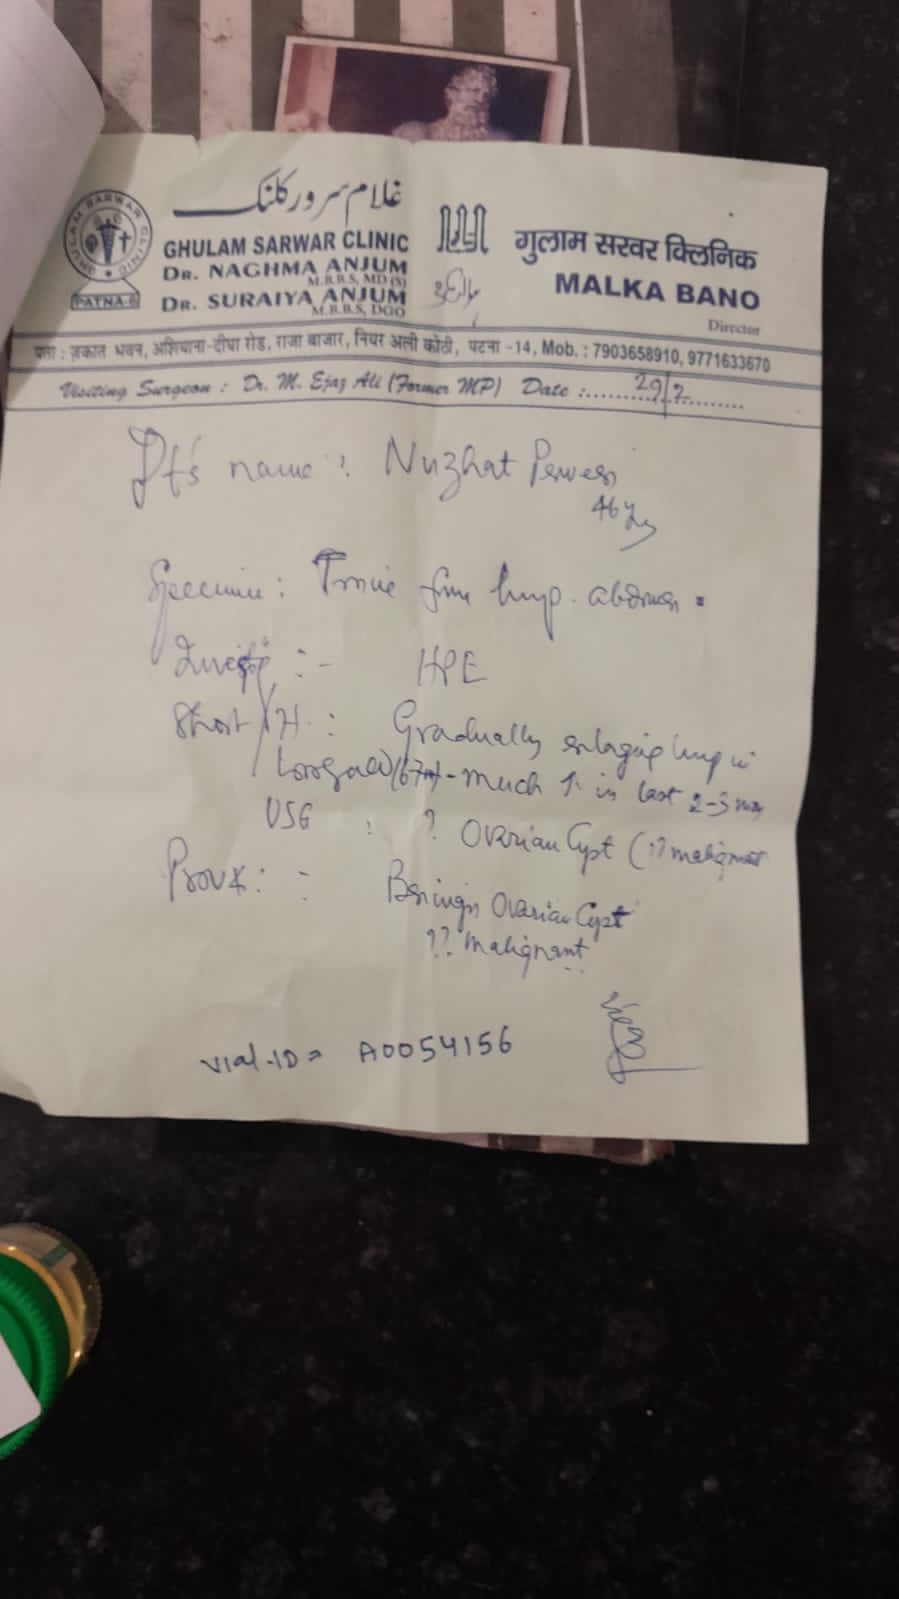 غلام سرور کلنک
GHULAM SARWAR CLINIC
PATNA-6
GHULAM SARWAR CLINIC
DR. NAGHMA ANJUM
M.B.B.S, MD (S)
DR. SURAIYA ANJUM
M.B.B.S, DGO
गुलाम सरवर क्लिनिक
MALKA BANO
Director
पता : ज़कात भवन, अशियाना-दीघा रोड, राजा बाजार, नियर अली कोठी, पटना -14, Mob. : 7903658910, 9771633670
Visiting Surgeon : Dr. M. Ejaz Ali (Former MP) Date :.......... 29/2 ..........
Pt's name : Nuzhat Perween
46 yrs
Specimen : lump. abdomen
:- HPE
Short H. : Gradually enlarging lump in
much ↑ in last 2-3
USG : ? Ovarian Cyst (?? malignant
: - Benign Ovarian Cyst
?? Malignant
Vial-ID = A0054156